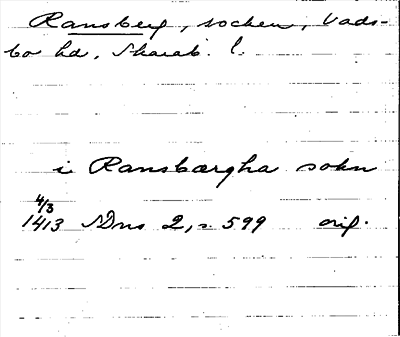 Ransberg, socken, Vads-
bo hd, Skarab. l.
i Ransbærgha sokn
4/3
1413 SDns 2, s. 599 orig.